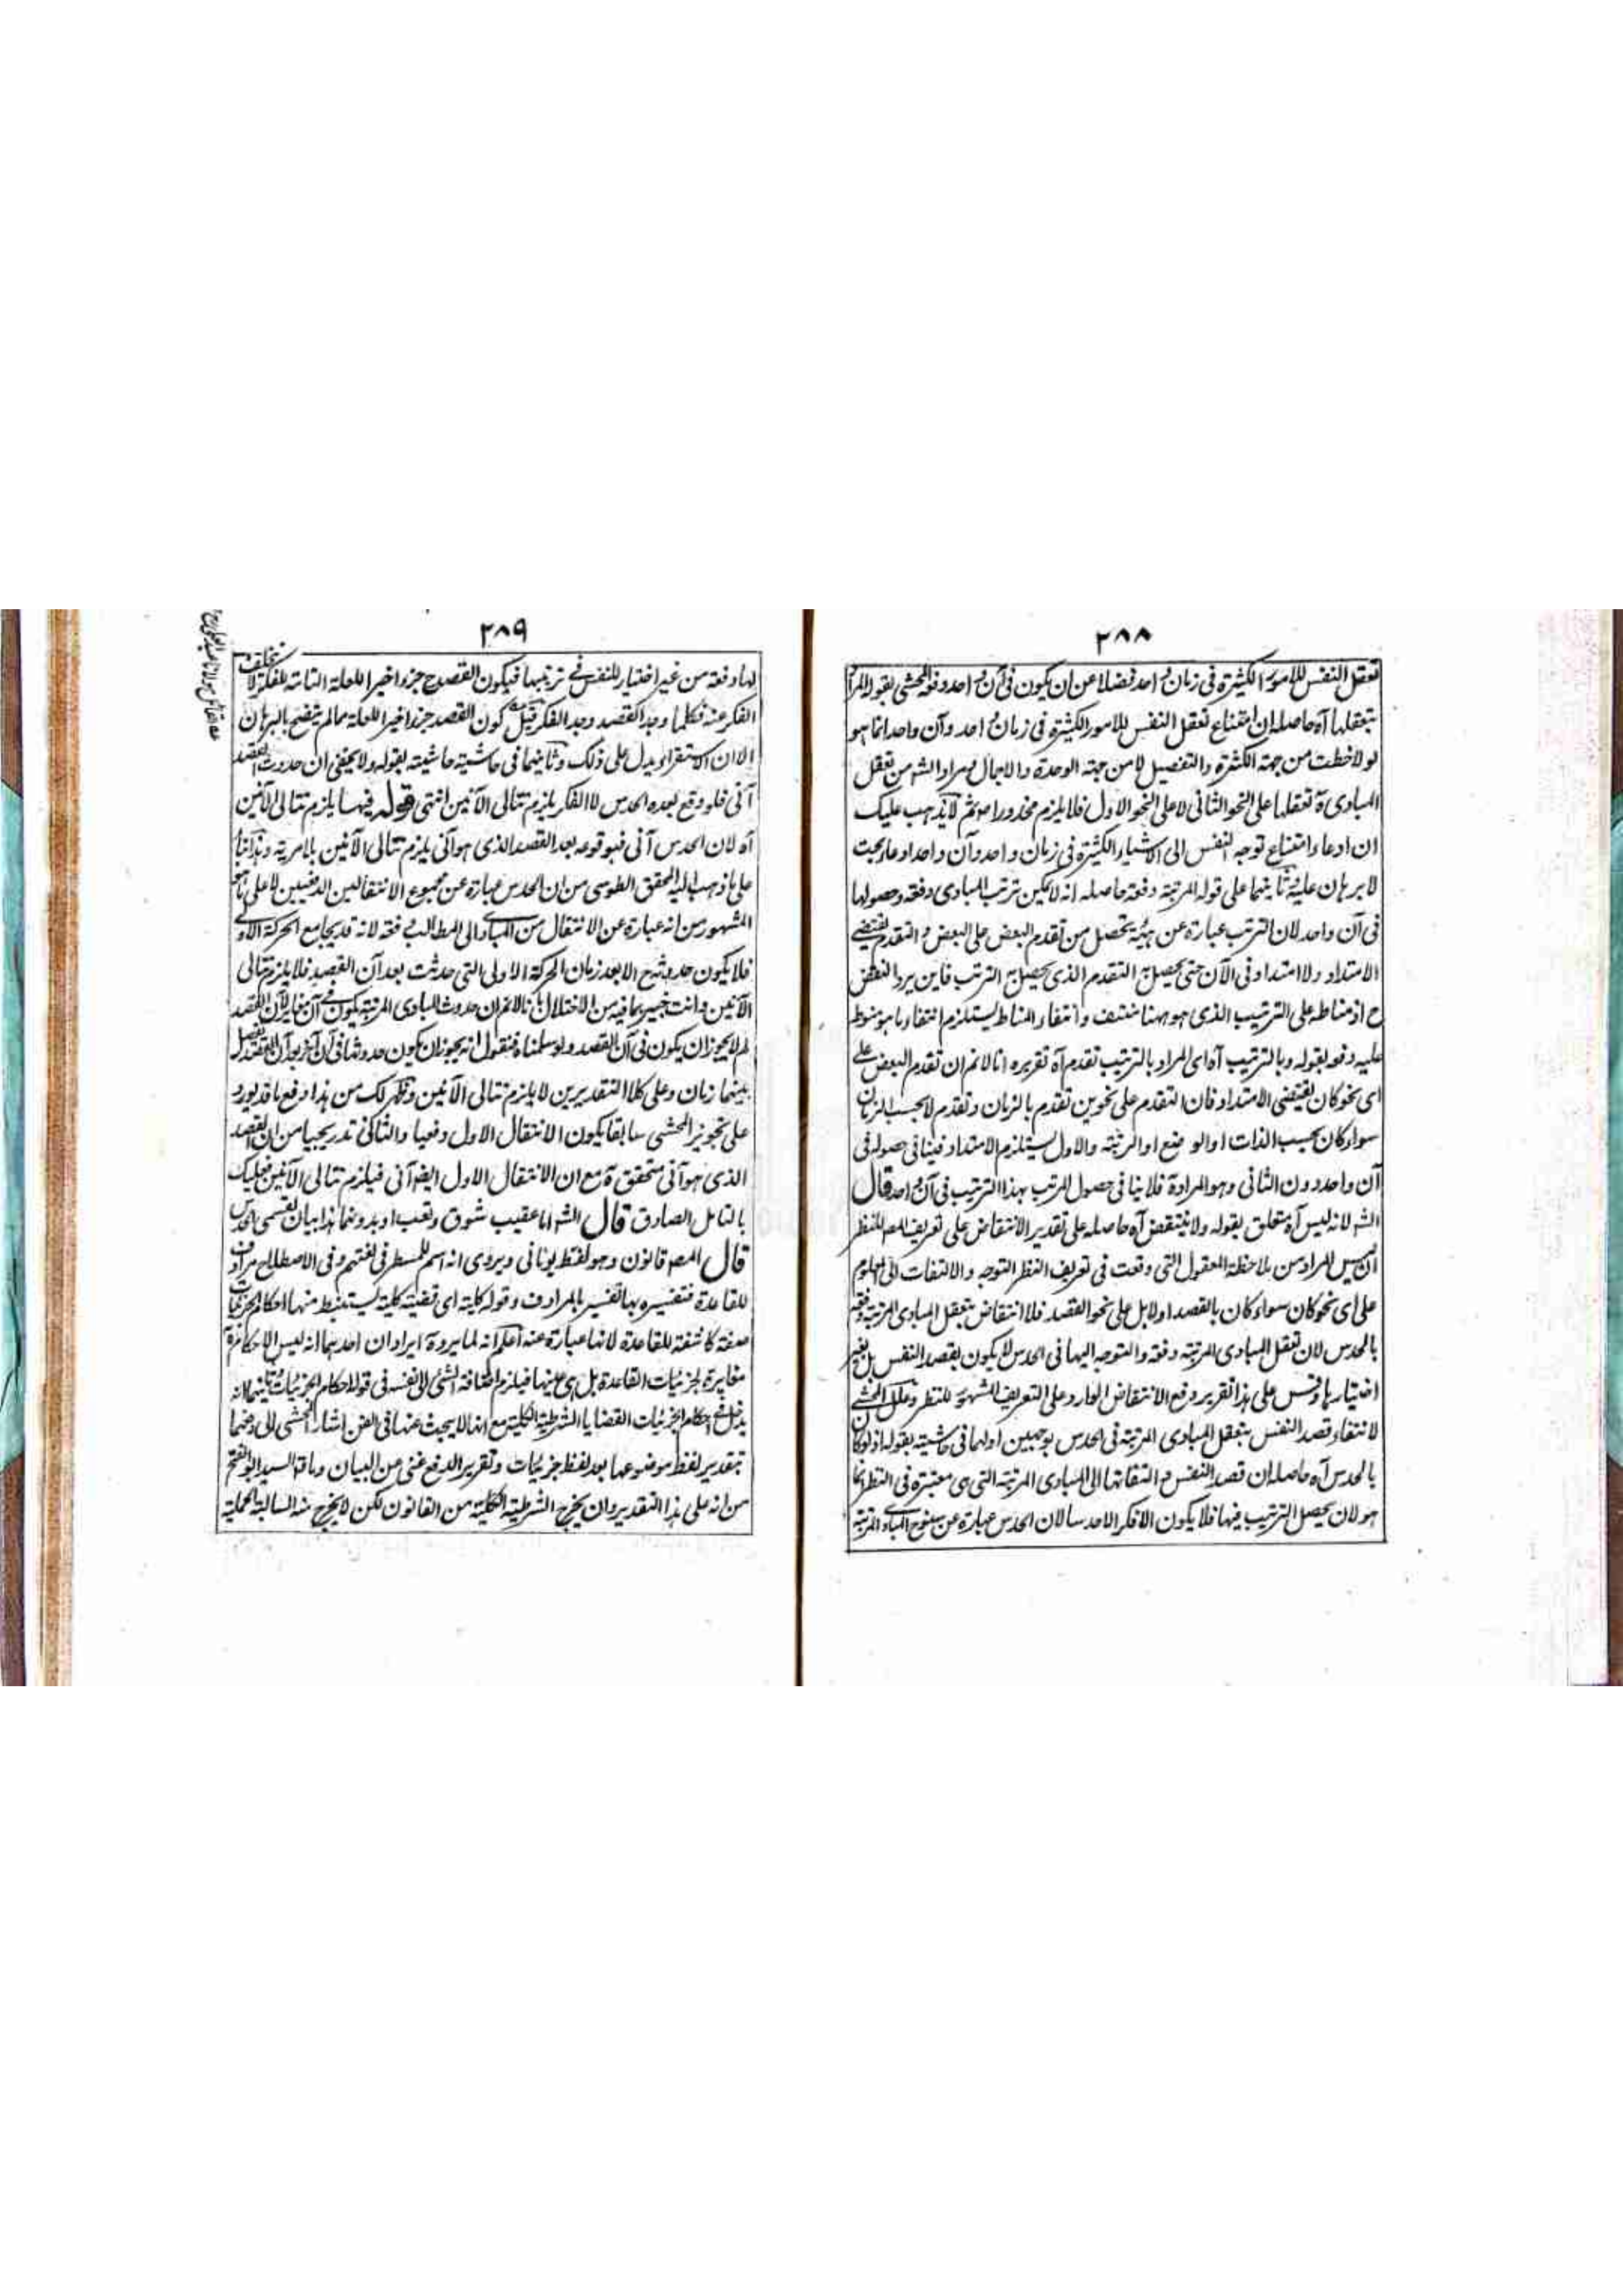 ٢٨٨
تعقل النفس للامور الكثيرة فى زمان واحد فضلا عن ان يكون فى آن واحد دفعه المحشى بقوله المراد
بتعقلها آه حاصله ان امتناع تعقل النفس للامور الكثيرة فى زمان واحد وآن واحد انما هو
لو لاحظت من جهة الكثرة والتفصيل لا من جهة الوحدة والاجمال ومراد الشم من تعقل
المبادى ة تعقلها على النحو الثانى لا على النحو الاول فلا يلزم محذور اصو ثم لا يذهب عليك
ان ادعاء امتناع توجه النفس الى الاشياء الكثيرة فى زمان واحد وآن واحد ادعاء بحت
لا برهان عليه وثانيهما على قوله المرتبة دفعة حاصله انه لا يمكن ترتب المبادى دفعة وحصولها
فى آن واحد لان الترتب عبارة عن هيئة تحصل من تقدم البعض على البعض والتقدم يقتضى
الامتداد ولا امتداد فى الآن حتى يحصل به التقدم الذى يحصل به الترتب فاين يرد النقض
ح اذ مناطه على الترتيب الذى هو ههنا منتف وانتفاء المناط يستلزم انتفاء ما هو منوط
عليه دفعه بقوله وبالترتيب آه اى المراد بالترتيب تقدم آه تقريره انا لانم ان تقدم البعض على
اى نحو كان يقتضى الامتداد فان التقدم على نحوين تقدم بالزمان وتقدم لا بحسب الزمان
سواء كان بحسب الذات او الوضع او الرتبة والاول يستلزم الامتداد فينافى حصوله فى
آن واحد دون الثانى وهو المراد ة فلا ينافى حصول المرتب بهذا الترتيب فى آن واحد قال
الشم لانه ليس آه متعلق بقوله ولا ينتقض آه حاصله على تقدير الانتقاض على تعريف المص للنظر
ان ليس المراد من ملاحظة المعقول التى وقعت فى تعريف النظر التوجه والالتفات الى المعلوم
على اى نحو كان سواء كان بالقصد او لا بل على نحو القصد فلا انتقاض بتعقل المبادى المرتبة دفعة
بالحدس لان تعقل المبادى المرتبة دفعة والتوجه اليها فى الحدس لا يكون بقصد النفس بل بغير
اختيارها وقس على هذا تقرير دفع الانتقاض الوارد على التعريف المشهور للنظر وعلل المحشى
لانتفاء قصد النفس بتعقل المبادى المرتبة فى الحدس بوجهين اولهما فى حاشيته بقوله اذ لو كان
بالحدس آه حاصله ان قصد النفس و التفاتها الى المبادى المرتبة التى هى معتبرة فى النظر انما
هو لان يحصل الترتيب فيها فلا يكون الا فكرا لا حدسا لان الحدس عبارة عن سنوح المبادى المرتبة
٢٨٩
لها دفعة من غير اختيار للنفس فى ترتيبها فيكون القصد ح جزء اخيرا للعلة التامة للفكر لا يتخلف
الفكر عنه فكلما وجد القصد وجد الفكر قيل كون القصد جزء اخيرا للعلة مما لم يتضح بالبرهان
الا ان الاستقراء يدل على ذلك وثانيهما فى حاشية حاشيته بقوله ولا يخفى ان حدوث القصد
آنى فلو وقع بعده الحدس لا الفكر يلزم تتالى الآنين انتهى قوله فيها يلزم تتالى الآنين
آه لان الحدس آنى فبوقوعه بعد القصد الذى هو آنى يلزم تتالى الآنين بلا مرية وهذا بناء
على ما ذهب اليه المحقق الطوسى من ان الحدس عبارة عن مجموع الانتقالين الدفعيين لا على ما هو
المشهور من انه عبارة عن الانتقال من المبادى الى المطالب دفعة لانه قد يجامع الحركة الاولى
فلا يكون حدوثه ح الا بعد زمان الحركة الاولى التى حدثت بعد آن القصد فلا يلزم تتالى
الآنين وانت خبير بما فيه من الاختلال بانا لانم ان حدوث المبادى المرتبة يكون فى آن مغاير لآن القصد
لم لا يجوز ان يكون فى آن القصد ولو سلمناه فنقول انه يجوز ان يكون حدوثها فى آن آخر بعد آن القصد يفصل
بينهما زمان وعلى كلا التقديرين لا يلزم تتالى الآنين وظهر لك من هذا دفع ما قد يورد
على تجويز المحشى سابقا بكون الانتقال الاول دفعيا والثانى تدريجيا من ان القصد
الذى هو آنى متحقق ة مع ان الانتقال الاول ايضا آنى فيلزم تتالى الآنين فعليك
بالتامل الصادق قال الشم اما عقيب شوق وتعب او بدونهما هذا بيان لقسمى الحدس
قال المصم قانون وهو لفظ يونانى ويروى انه اسم للمسطر فى لغتهم وفى الاصطلاح مرادف
للقاعدة فتفسيره بها تفسير بالمرادف وقوله كلية اى قضية كلية يستنبط منها احكام الجزئيات
صفة كاشفة للقاعدة لانها عبارة عنه اعلم انه لما يرد ة ايرادان احدهما انه ليس الاحكام ة
مغايرة لجزئيات القاعدة بل هى عينها فيلزم اضافة الشئ الى نفسه فى قوله احكام الجزئيات وثانيهما لانه
يدخل فى احكام الجزئيات القضايا الشرطية الكلية مع انها لا يبحث عنها فى الفن اشار المحشى الى دفعهما
بتقدير لفظ موضوعها بعد لفظ جزئيات وتقرير الدفع غنى عن البيان وما قال السيد ابو الفتح
من انه على هذا التقدير وان يخرج الشرطية الكلية من القانون لكن لا يخرج منه السالبة الحملية